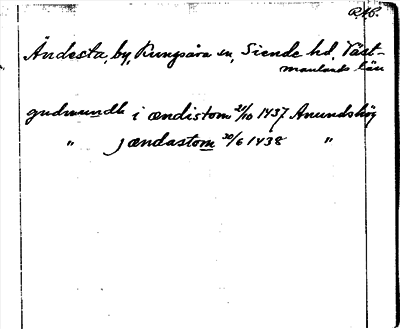 RAP.
Ändesta, by, Kungsåra sn, Siende hd, Väst-
manlands län
gudmundh i ændistom 21/10 1437 Anundshög
" j ændastom 30/6 1438 "